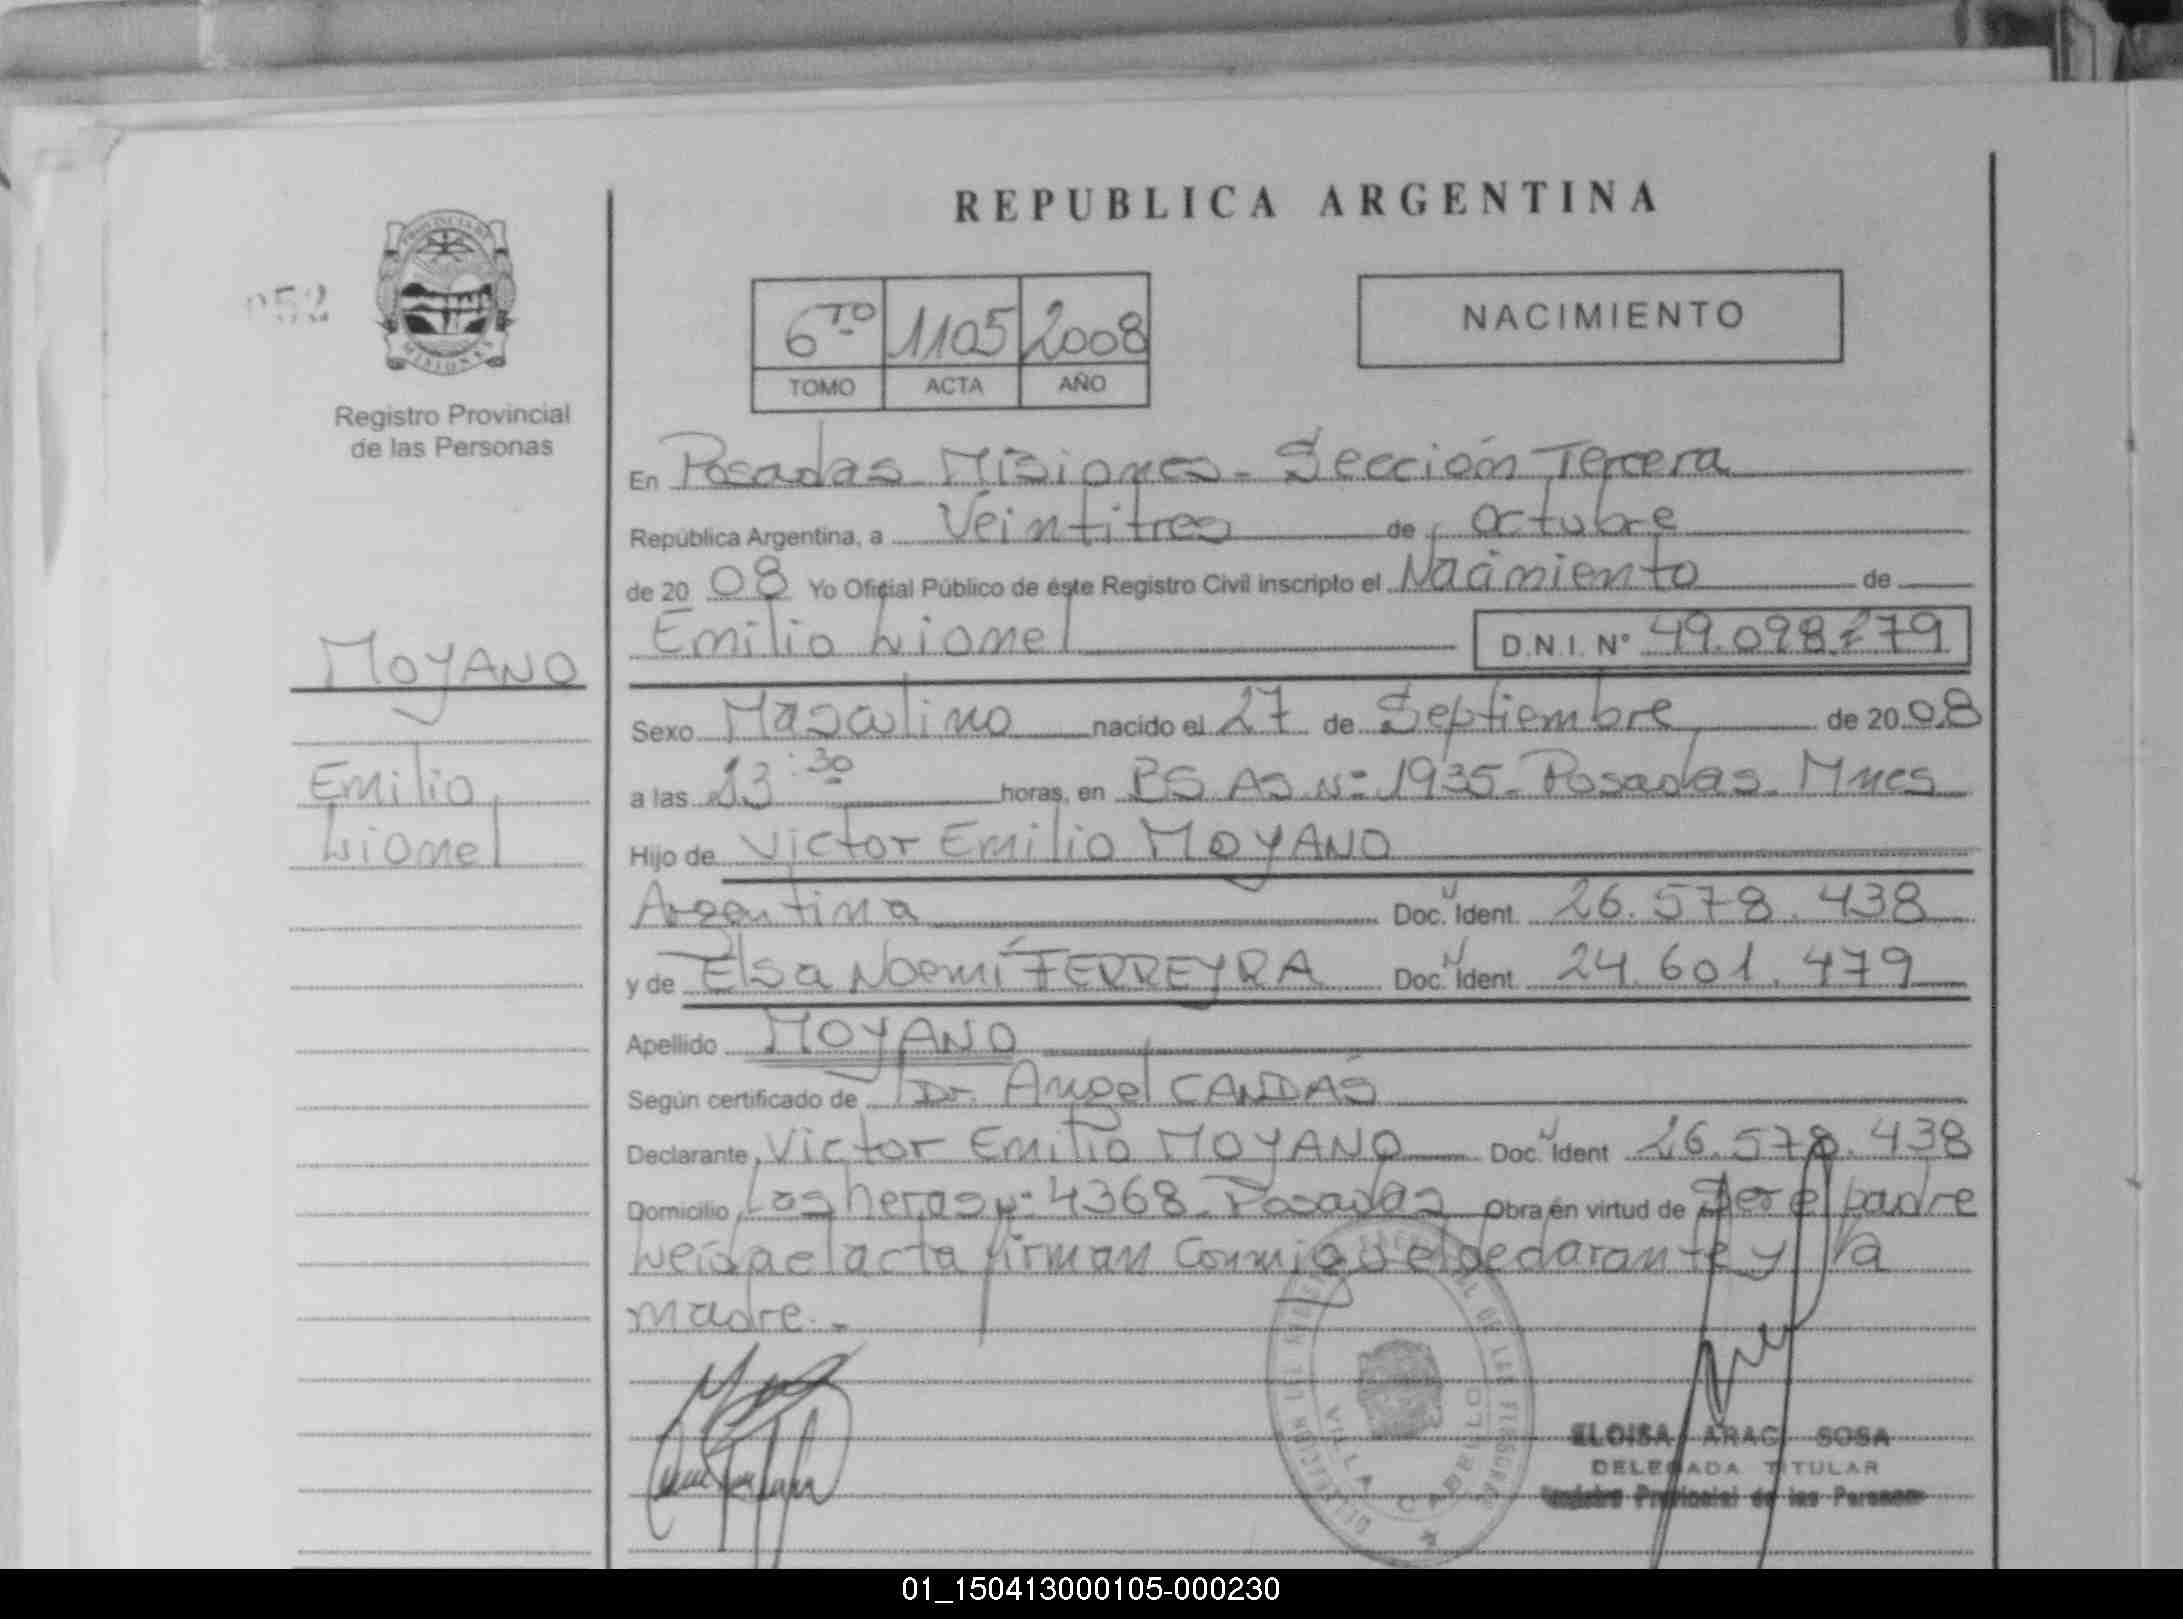 REPUBLICA ARGENTINA
PROVINCIA DE
MISIONES
Registro Provincial
de las Personas
6TO 1105 2008
TOMO ACTA AÑO
NACIMIENTO
En Posadas Misiones - Sección Tercera
República Argentina, a Veintitres de octubre
de 20 08 Yo Oficial Público de éste Registro Civil inscripto el Nacimiento de
Emilio Lionel D.N.I. Nº
MOYANO
Sexo Masculino nacido el 27 de Septiembre de 20 08
Emilio
a las 13:30 horas, en BS AS Nº 1935 - Posadas - Mnes
Lionel
Hijo de Victor Emilio MOYANO
Argentina Doc. Ident. 26.578.438
y de Elsa Noemí FERREYRA Doc. Ident. 24.601.479
Apellido MOYANO
Según certificado de Dr. Angel CANDAS
Declarante Victor Emilio MOYANO Doc. Ident 26.578.438
Domicilio Las heras Nº 4368 - Posadas Obra en virtud de Ser el padre
Leída el acta firman Conmigo el declarante y la
madre.-
VILLA CABELLO
ELOISA ARAC SOSA
DELEGADA TITULAR
Registro Provincial de las Personas
01_150413000105-000230